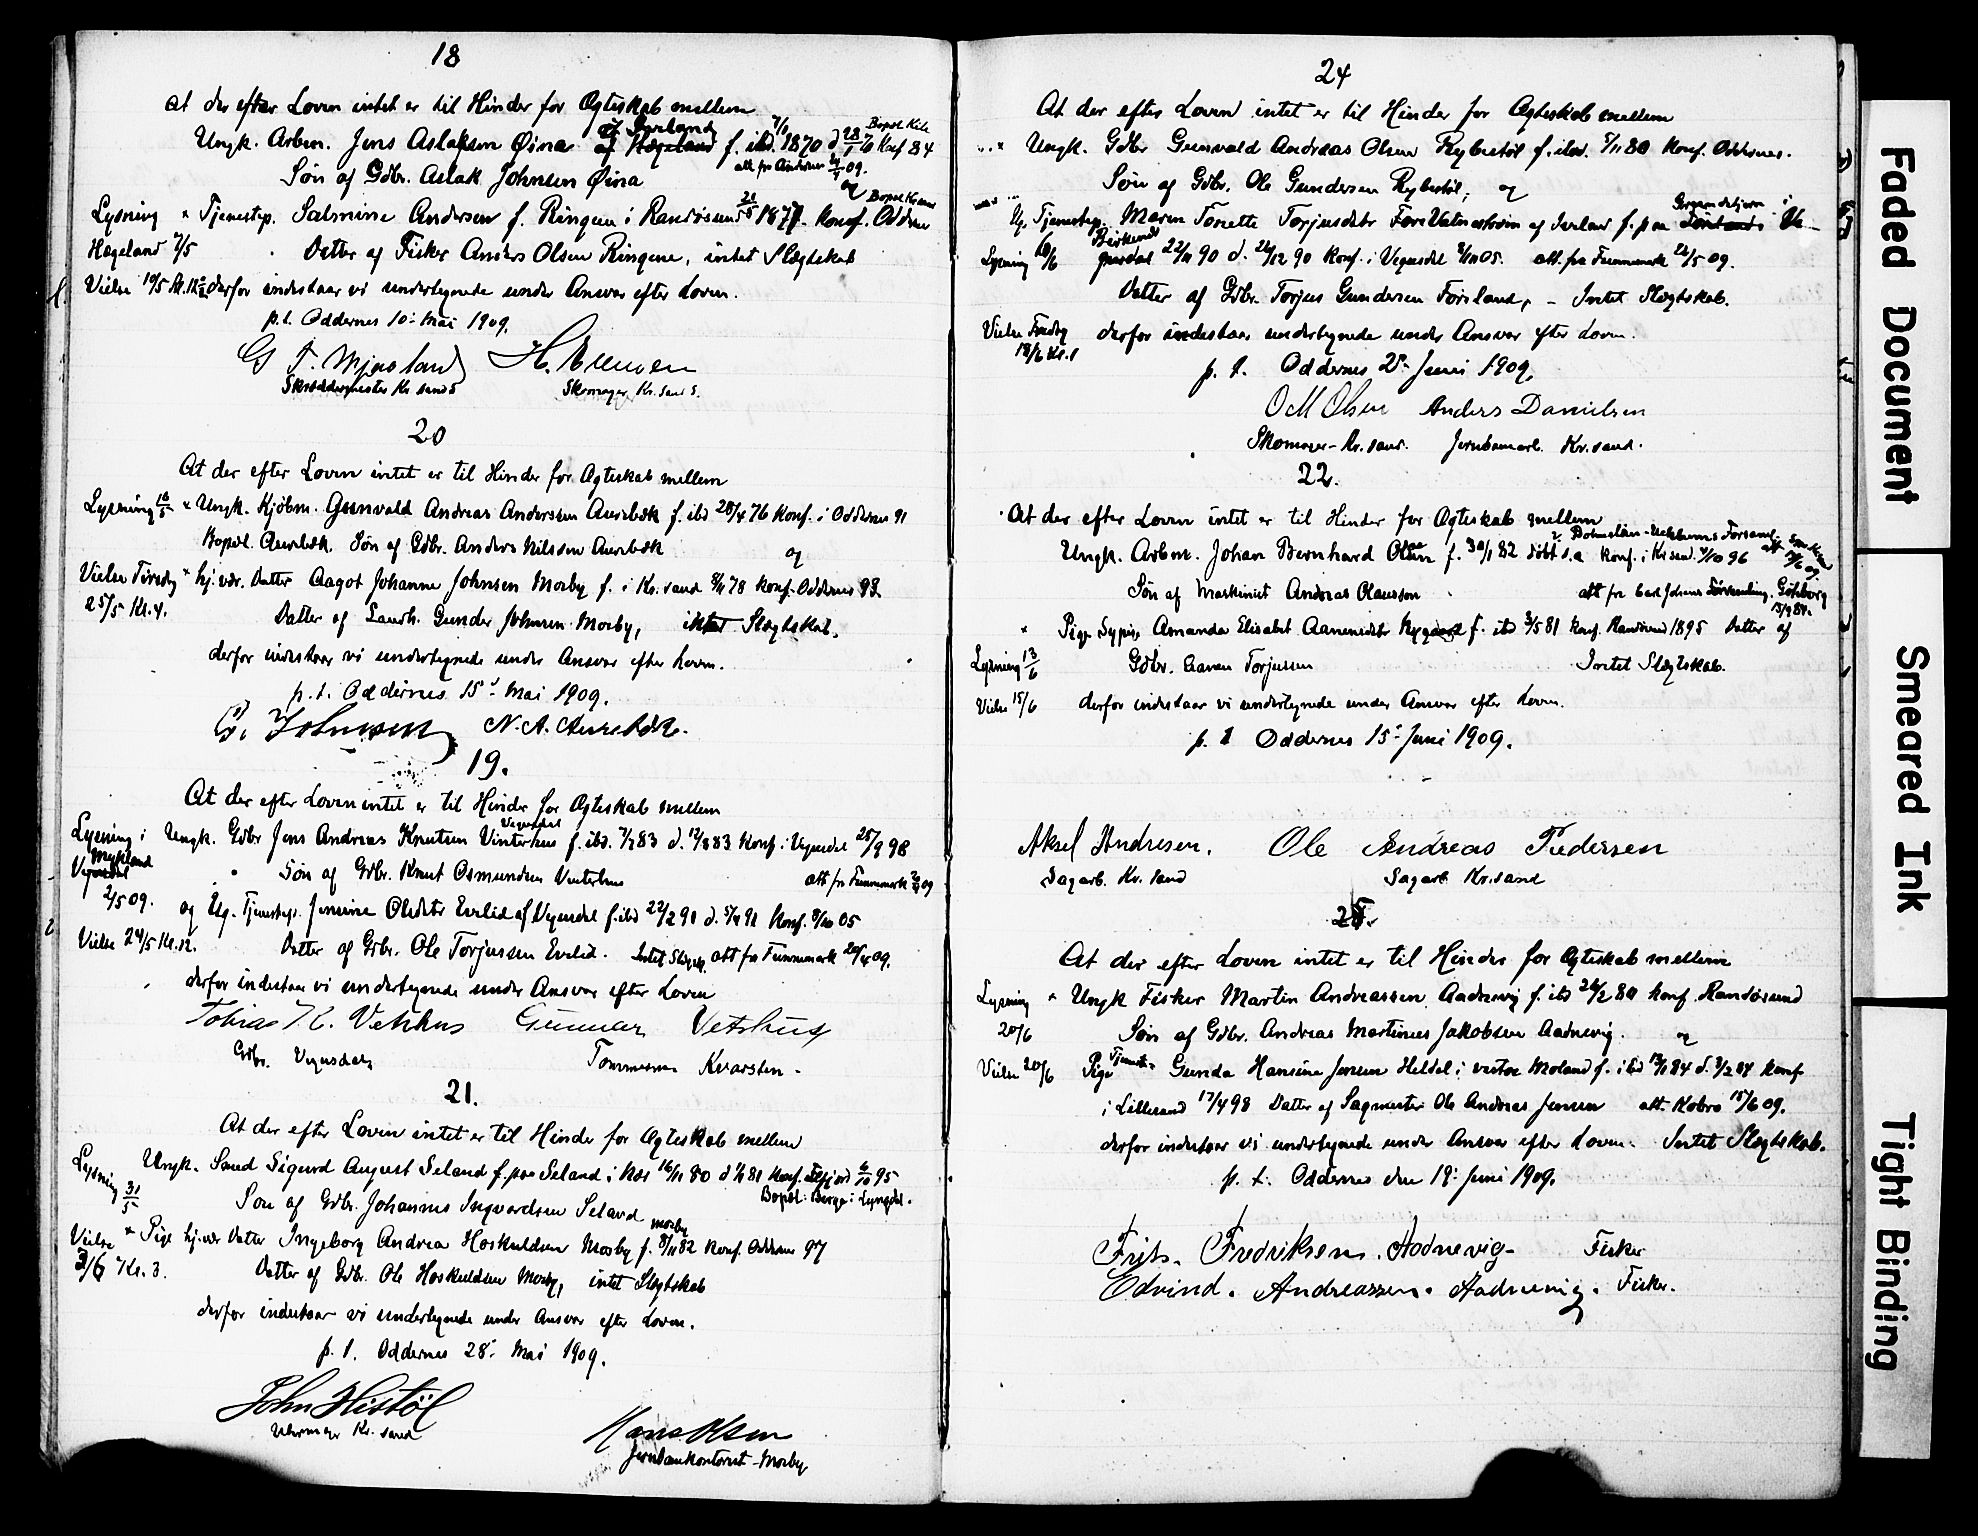 18
at der efter Loven intet er til Hinder for Ægteskab mellem
Ungk. Arbm. Jens Aslaksen Øina af Hægeland f. ibd. 7/1 1870 Konf 84
att fra 09.
Søn af Gdbr. Aslak Johnsen Øina og
Lysning Tjenestep. Salmine Andersen f. Ringen i Randøsund 1877. Konf. Oddernes
Hægeland 2/5 Datter af Fisker Anders Olsen Ringene, intet Slægtskab
Vielse 10/5 Kl. 12 derfor indestaar vi undertegnede under Ansvar efter Loven.
p.t. Oddernes 10: Mai 1909.
G T. Mjaaland
Skræddermester Kr sand S Skomager Kr. sand S.
20
At der efter Loven intet er til Hinder for Ægteskab mellem
Lysning 16/5 Ungk. Kjøbm. Gunvald Andreas Anderssen Aurebæk f. ibd 28/4 76 Konf. i Oddernes 91
Bopæl Aurebæk. Søn af Gdbr. Anders Nilssen Aurebæk og
Vielse Tirsdag hj. vær. Datter Aagot Johanne Johnsen Mosby f. i Kr. sand 8/11 78 Konf. Oddernes 93
25/5 Kl. 4. Datter af Landh. Gunder Johnsen Mosby, intet Slægtskab.
derfor indestaar vi undertegnede under Ansvar efter Loven.
p.t. Oddernes 15: Mai 1909.
G. Johnsen N. A. Aurebæk.
19.
At der efter Loven intet er til Hinder for Ægteskab mellem
Vegusdal
Lysning i Ungk. Gdbr Jens Andreas Knutsen Vinterhus f. ibd. 7/7 83 d. 12/8 83 Konf. i Vegusdal 25/9 98
Mykland
Vegusdal Søn af Gdbr. Knut Osmundsen Vinterhus att fra 09
2/5 09. og Ug. Tjenestep. Jensine Olsdatr Evelid af Vegusdal f. ibd 22/2 91 d. 5/4 91 Konf. 8/10 05
Vielse 24/5 Kl. 12. Datter af Gdbr. Ole Torjussen Evelid. Intet Slægtsk. att fra 20/4 09.
derfor indestaar vi undertegnede under Ansvar efter Loven
Tobias K. Vetrhus Gunnar Vetrhus
Gdbr. Vegusdal Tømmerm. Kvarsten.
21.
At der efter Loven intet er til Hinder for Ægteskab mellem
Lysning 31/5 Ungk. Smed Sigurd August Seland f. paa Seland i Næs 16/11 80 d 1/1 81 Konf. 6/10 95
Bopæl: Berge i Lyngdal.
Søn af Gdbr. Johannes Ingvardsen Seland
Mosby
Vielse Pige hj. vær Datter Ingeborg Andrea Hoskuldsen Mosby f. 8/11 82 Konf. Oddernes 97
3/6 Kl. 3. Datter af Gdbr. Ole Hoskuldsen Mosby, intet Slægtskab
derfor indestaar vi undertegnede under Ansvar efter Loven.
p. t. Oddernes 28: Mai 1909.
John Histøl
Uhrmager Kr. sand
Hans Olsen
Jernbanekontorist Mosby
24
At der efter Loven intet er til Hinder for Ægteskab mellem
Ungk. Gdbr Gunvald Andreas Olsen Rybestøl f. ibd. 5/11 80 Konf. Oddernes.
Søn af Gdbr. Ole Gundersen Rybestøl; og
Ug. Tjenestep. Maren Tonette Torjusdatr af Iveland f. paa
Lysning 22/11 90 d. 26/12 90 Konf. i Vegusdal 8/10 05. att. fra 22/5 09.
Datter af Gdbr. Torjus Gundersen Førsland, – Intet Slægtskab.
Vielse Fredag derfor indestaar undertegnede under Ansvar efter Loven.
18/6 Kl. 1
p. t. Oddernes 2: Juni 1909.
O M Olsen Anders Danielsen
Skomager Kr. sand. Jernbanearb. Kr. sand.
22.
At der efter Loven intet er til Hinder for Ægteskab mellem
Ungk. Arbm. Johan Bernhard Olsen f. 30/1 82 døbt s.a Konf. i Kr sand 4/10 96
Søn af Maskinist Andreas Olausson att fra Carl Johans Församling. Göteborg
13/9 84.
Pige Sypige Amanda Elisabet Aanensdatr Nygaard f. ibd 3/5 81 Konf. Randøsund 1895 Datter af
Lysning 13/6 Gdbr. Aanen Torjussen Intet Slægtskab.
Vielse 15/6 derfor indestaar vi undertegnede under Ansvar efter Loven.
p. t Oddernes 15: Juni 1909.
Aksel Andresen. Ole Andreas Pedersen
Sagarb. Kr. sand Sagarb Kr. sand
25.
At der efter Loven intet er til Hinder for Ægteskab mellem
Lysning Ungk Fisker Martin Andreassen Aadnevig f. ibd 26/2 80 Konf. Randøsund
20/6 Søn af Gdbr. Andreas Martinus Jakobsen Aadnevig. og
Vielse 20/6 Pige Tjeneste Gunda Hansine Jensen Heldal i vestre Moland f. ibd 13/1 84 d. 3/2 84 Konf
i Lillesand 17/4 98 Datter af Sagmester Ole Andreas Jensen att. Kobro 15/6 09.
derfor indestaar vi undertegnede under Ansvar efter Loven. Intet Slægtskab.
p. t. Oddernes den 19: Juni 1909.
Frits. Fredriksen. Aadnevig- Fisker
Edvind. Andreassen. Aadnevig. Fisker.
Faded Document
Smeared Ink
Tight Binding